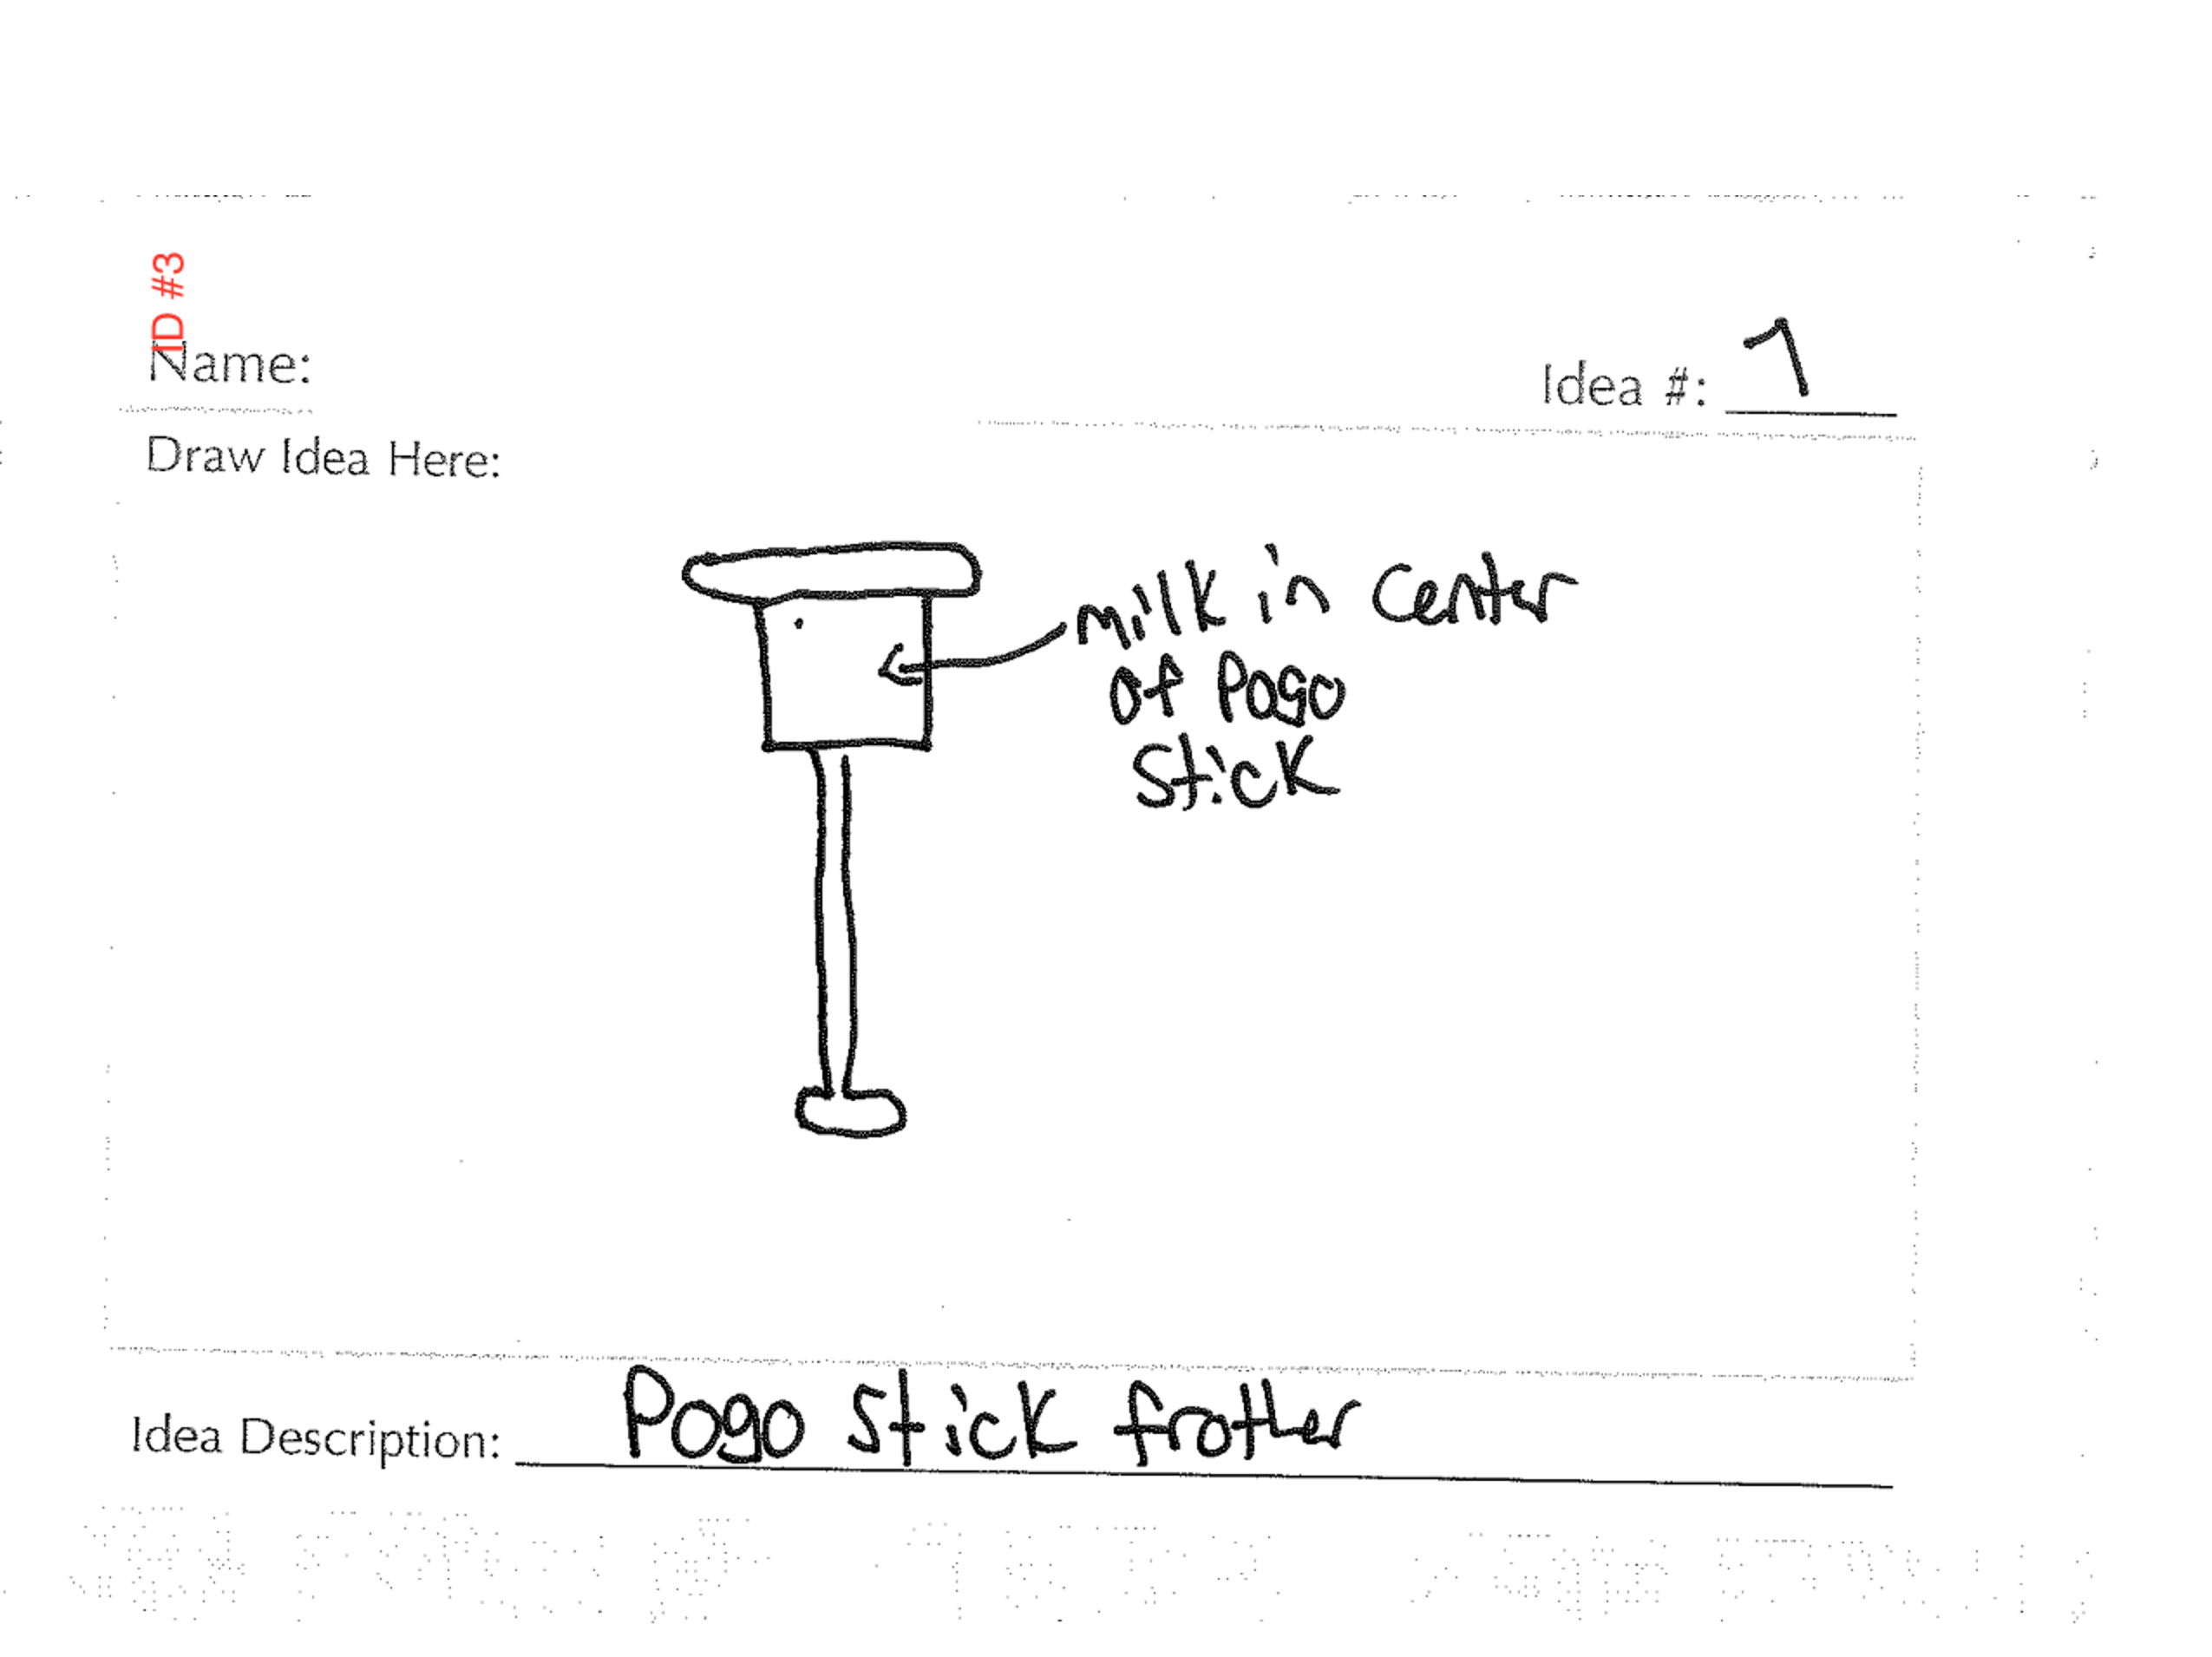 ID #3
Name:
Idea #: 1
Draw Idea Here:
milk in center
of Pogo
Stick
Idea Description: Pogo Stick frother